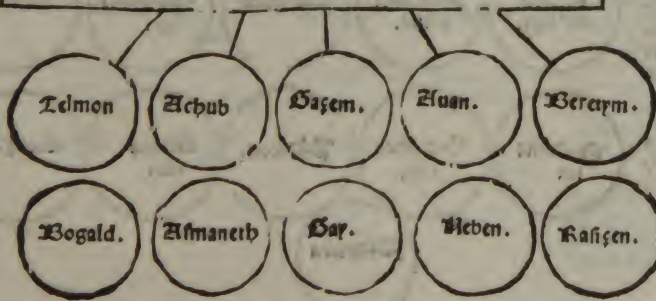 Telmon Achub Gaçem. Auan. Bercym.
Bogald. Asmaneth Gay. Neben. Rasiçen.